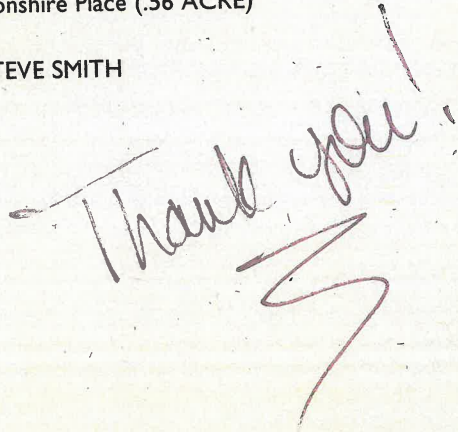 onshire Place (.56 ACRE)
TEVE SMITH
Thank you!